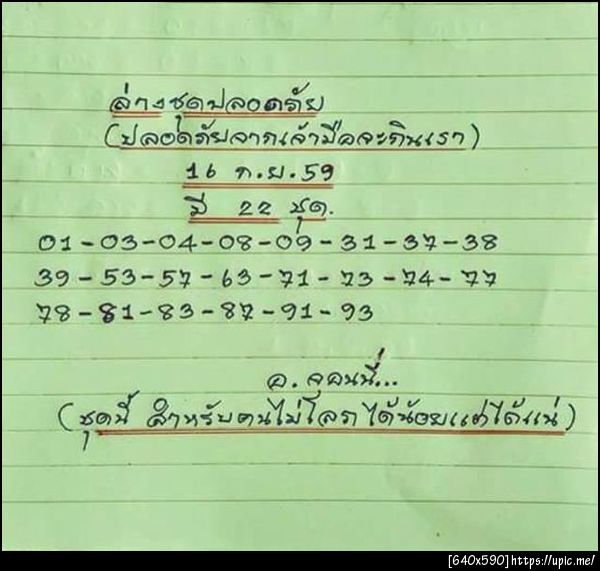 ล่างชุดปลอดภัย
(ปลอดภัยจากเจ้ามือจะกินเรา)
16 ก.ย.59
มี 22 ชุด.
01-03-04-08-09-31-37-38
39-53-57-63-71-73-74-77
78-81-83-87-91-93
อ.จอนนี่...
(ชุดนี้ สำหรับคนไม่โลภ ได้น้อยแต่ได้แน่)
[640x590]https://upic.me/